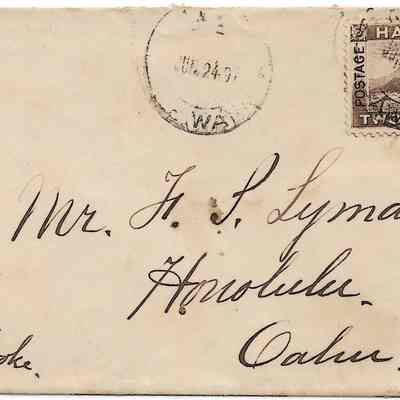 JUN. 24
HA
POSTAGE
TW
Mr. F. S. Lyma
Honolulu.
Oahu.
oke.